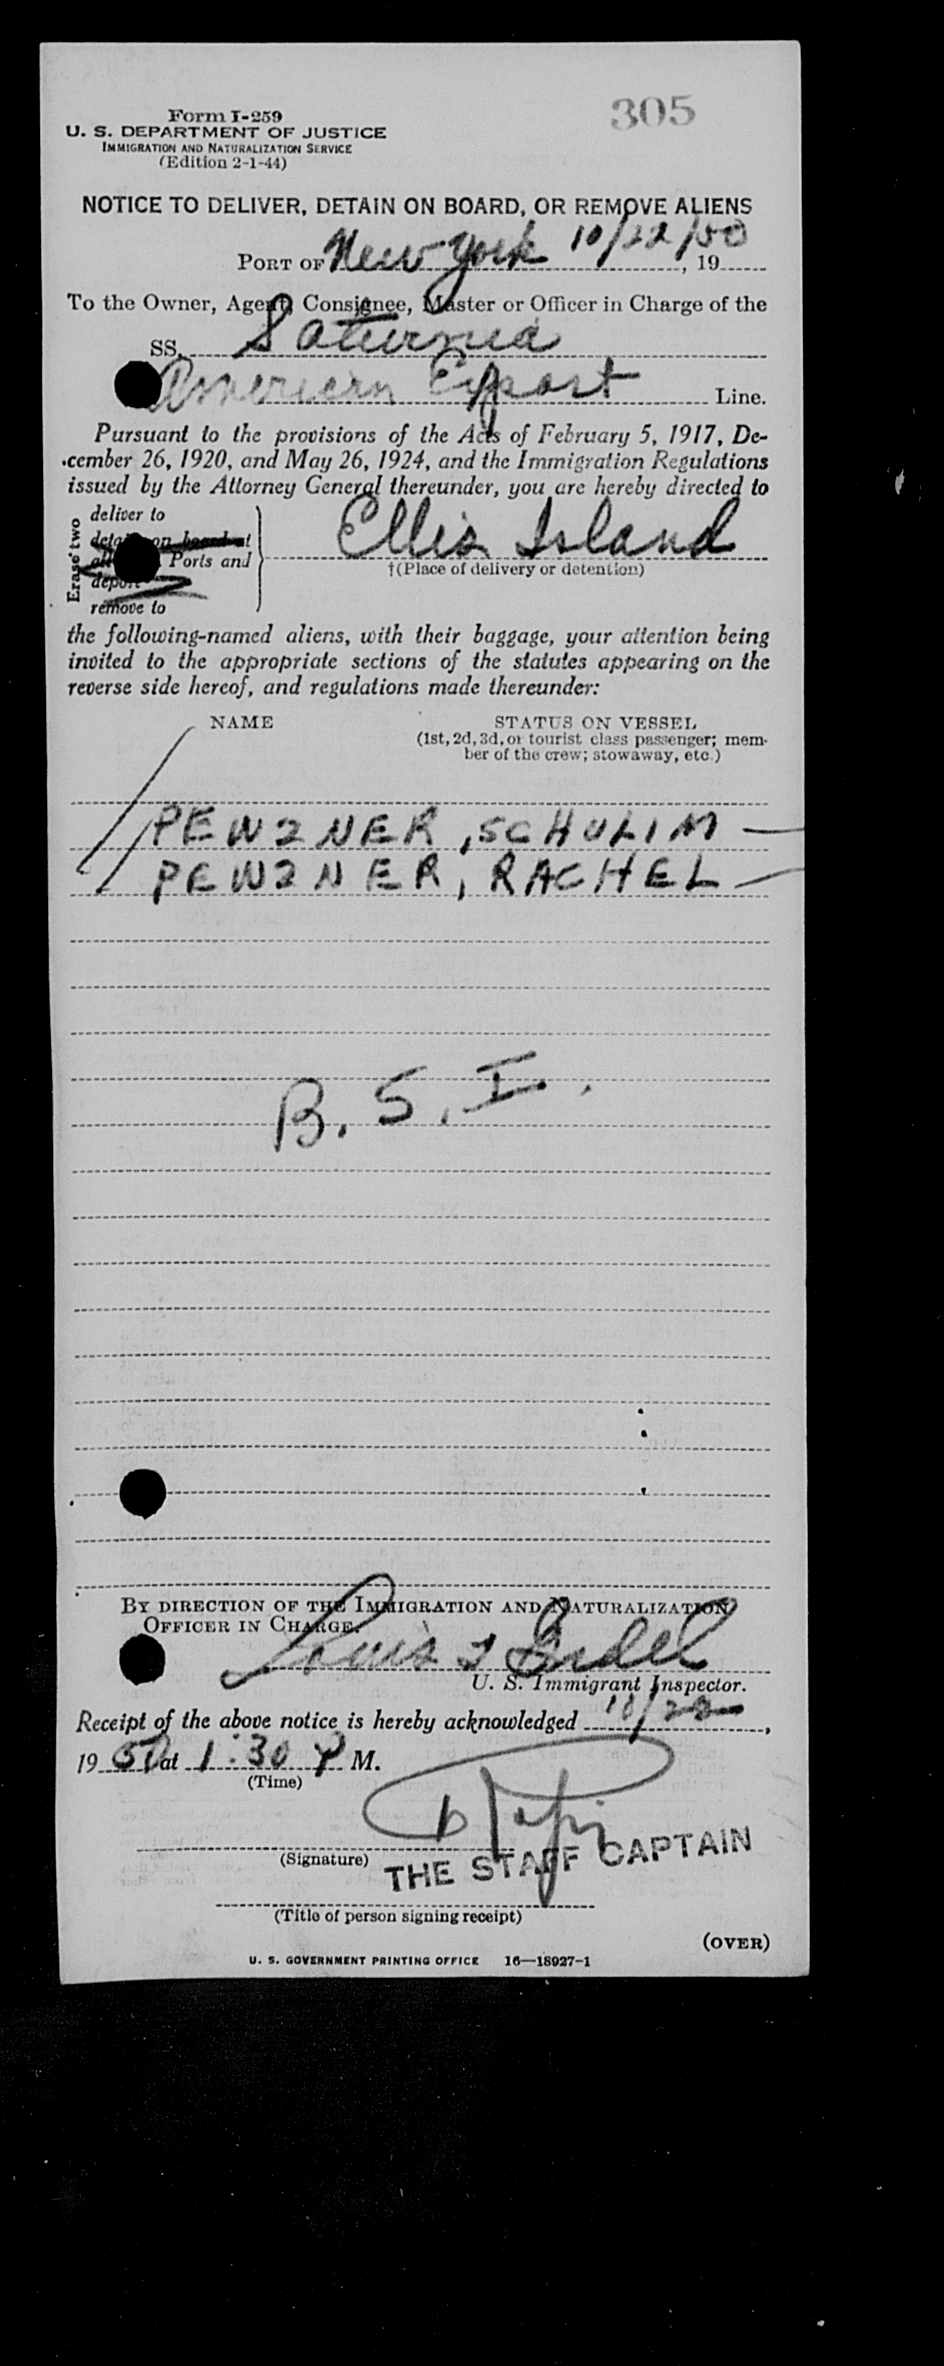 305
Form I-259
U. S. DEPARTMENT OF JUSTICE
IMMIGRATION AND NATURALIZATION SERVICE
(Edition 2-1-44)
NOTICE TO DELIVER, DETAIN ON BOARD, OR REMOVE ALIENS
PORT OF New York 10/22/50, 19
To the Owner, Agent, Consignee, Master or Officer in Charge of the
SS. Saturnia
American Export Line.
Pursuant to the provisions of the Acts of February 5, 1917, De-
cember 26, 1920, and May 26, 1924, and the Immigration Regulations
issued by the Attorney General thereunder, you are hereby directed to
Erase two
deliver to
detain on board at
all Ports and
deport
remove to
Ellis Island
†(Place of delivery or detention)
the following-named aliens, with their baggage, your attention being
invited to the appropriate sections of the statutes appearing on the
reverse side hereof, and regulations made thereunder:
NAME STATUS ON VESSEL
(1st, 2d, 3d, or tourist class passenger; mem-
ber of the crew; stowaway, etc.)
PEWZNER, SCHULIM —
PEWZNER, RACHEL —
B. S. I.
BY DIRECTION OF THE IMMIGRATION AND NATURALIZATION
OFFICER IN CHARGE.
Louis
U. S. Immigrant Inspector.
Receipt of the above notice is hereby acknowledged 10/22,
19 50 at 1:30 P M.
(Time)
(Signature)
THE STAFF CAPTAIN
(Title of person signing receipt)
(OVER)
U. S. GOVERNMENT PRINTING OFFICE 16—18927-1